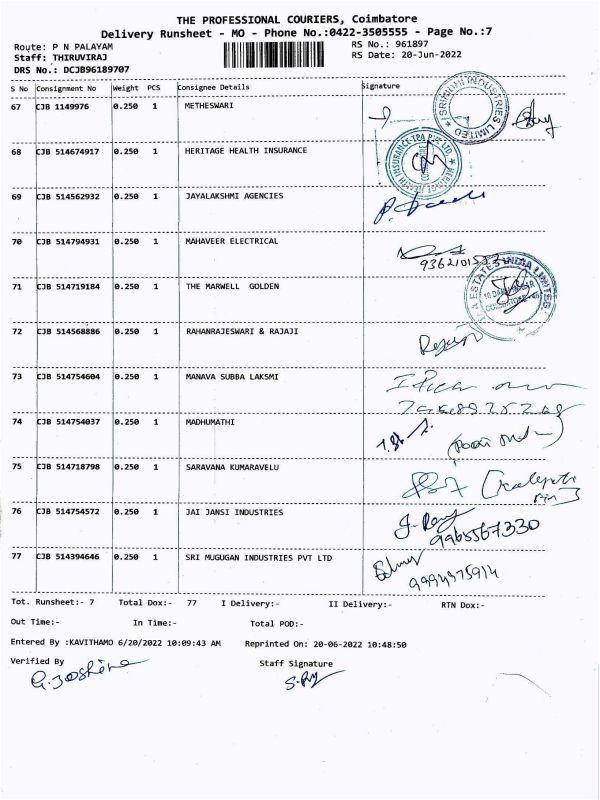 THE PROFESSIONAL COURIERS, Coimbatore
Delivery Runsheet - MO - Phone No.:0422-3505555 - Page No.:7
Route: P N PALAYAM RS No.: 961897
Staff: THIRUVIRAJ RS Date: 20-Jun-2022
DRS No.: DCJB96189707
S No Consignment No Weight PCS Consignee Details Signature
67 CJB 1149976 0.250 1 METHESWARI
INDUSTRIES LIMITED
68 CJB 514674917 0.250 1 HERITAGE HEALTH INSURANCE
HEALTH INSURANCE TPA PVT LTD
69 CJB 514562932 0.250 1 JAYALAKSHMI AGENCIES
70 CJB 514794931 0.250 1 MAHAVEER ELECTRICAL
71 CJB 514719184 0.250 1 THE MARWELL GOLDEN
ESTATES INDIA LIMITED
72 CJB 514568886 0.250 1 RAHANRAJESWARI & RAJAJI
73 CJB 514754604 0.250 1 MANAVA SUBBA LAKSMI
74 CJB 514754037 0.250 1 MADHUMATHI
75 CJB 514718798 0.250 1 SARAVANA KUMARAVELU
76 CJB 514754572 0.250 1 JAI JANSI INDUSTRIES
9965567330
77 CJB 514394646 0.250 1 SRI MUGUGAN INDUSTRIES PVT LTD
9994975914
Tot. Runsheet:- 7 Total Dox:- 77 I Delivery:- II Delivery:- RTN Dox:-
Out Time:- In Time:- Total POD:-
Entered By :KAVITHAMO 6/20/2022 10:09:43 AM Reprinted On: 20-06-2022 10:48:50
Verified By Staff Signature